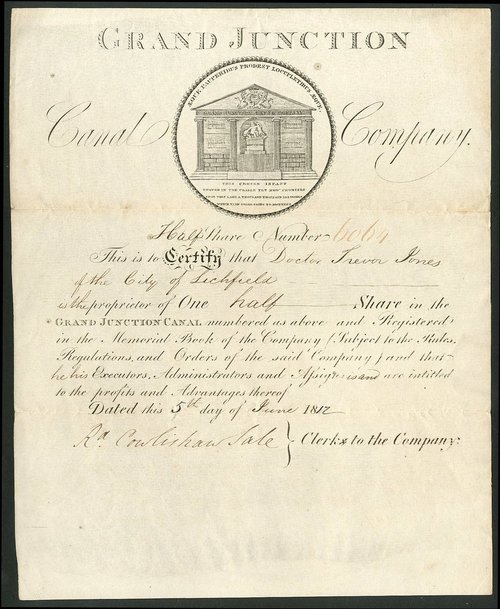 GRAND JUNCTION
Canal Company.
ÆQUE PAUPERIBUS PRODEST LOCUPLETIBUS ÆQUE
GRAND JUNCTION CANAL COMPANY
THIS CHOSEN INFANT
Half Share Number 6064
This is to Certify that Doctor Trevor Jones
of the City of Lichfield
is the proprietor of One half Share in the
GRAND JUNCTION CANAL numbered as above and Registered
in the Memorial Book of the Company (Subject to the Rules,
Regulations, and Orders of the said Company) and that
he his Executors, Administrators and Assigns is and are intitled
to the profits and Advantages thereof
Dated this 5th day of June 1812
Rd. Cowlishaw Sale } Clerks to the Company: